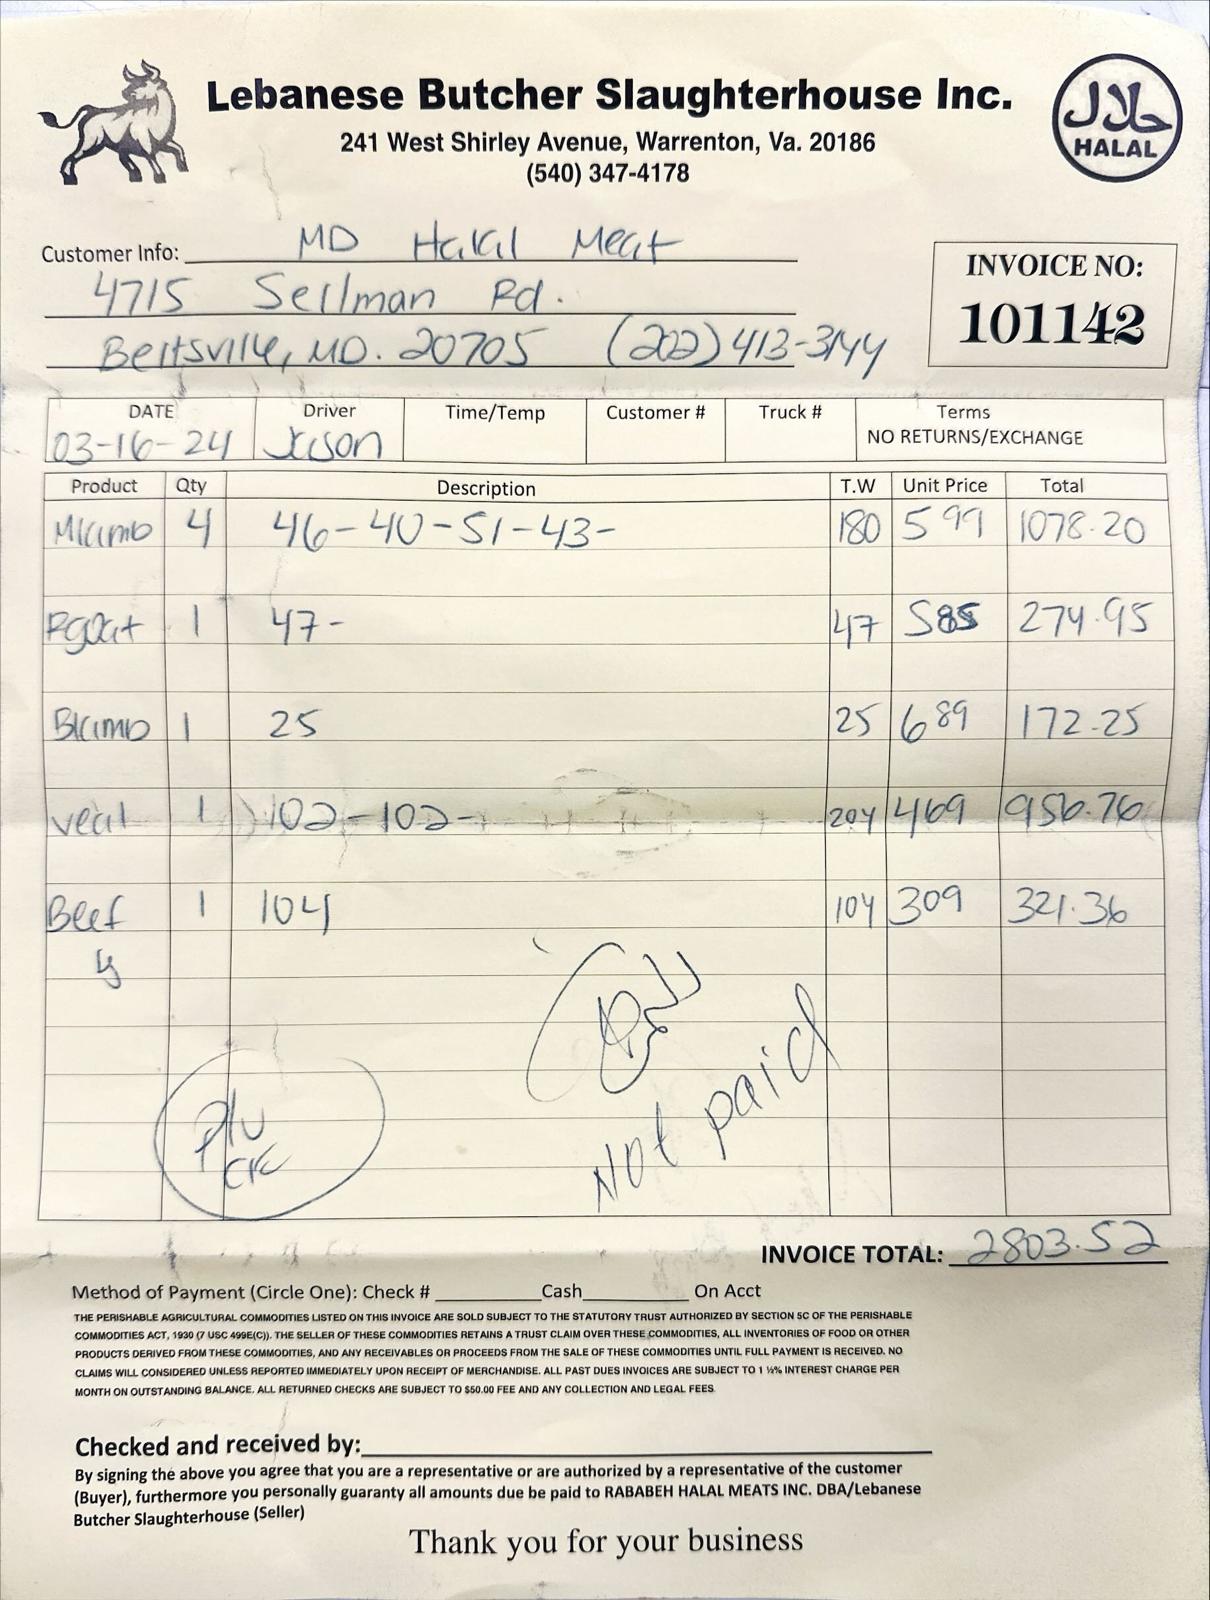 Lebanese Butcher Slaughterhouse Inc.
241 West Shirley Avenue, Warrenton, Va. 20186
(540) 347-4178
حلال
HALAL
Customer Info: MD Halal Meat
4715 Sellman Rd.
Beltsville, MD. 20705 (202) 413-3144
INVOICE NO:
101142
DATE Driver Time/Temp Customer # Truck # Terms
03-16-24 Jason NO RETURNS/EXCHANGE
Product Qty Description T.W Unit Price Total
Mlamb 4 46-40-51-43- 180 5 99 1078.20
Rgoat 1 47- 47 5 85 274.95
Blamb 1 25 25 6 89 172.25
veal 1 102-102- 204 469 956.76
Beef 1 104 104 309 321.36
Not paid
INVOICE TOTAL: 2803.52
Method of Payment (Circle One): Check # Cash On Acct
THE PERISHABLE AGRICULTURAL COMMODITIES LISTED ON THIS INVOICE ARE SOLD SUBJECT TO THE STATUTORY TRUST AUTHORIZED BY SECTION 5C OF THE PERISHABLE
COMMODITIES ACT, 1930 (7 USC 499E(C)). THE SELLER OF THESE COMMODITIES RETAINS A TRUST CLAIM OVER THESE COMMODITIES, ALL INVENTORIES OF FOOD OR OTHER
PRODUCTS DERIVED FROM THESE COMMODITIES, AND ANY RECEIVABLES OR PROCEEDS FROM THE SALE OF THESE COMMODITIES UNTIL FULL PAYMENT IS RECEIVED. NO
CLAIMS WILL CONSIDERED UNLESS REPORTED IMMEDIATELY UPON RECEIPT OF MERCHANDISE. ALL PAST DUES INVOICES ARE SUBJECT TO 1 ½% INTEREST CHARGE PER
MONTH ON OUTSTANDING BALANCE. ALL RETURNED CHECKS ARE SUBJECT TO $50.00 FEE AND ANY COLLECTION AND LEGAL FEES
Checked and received by:
By signing the above you agree that you are a representative or are authorized by a representative of the customer
(Buyer), furthermore you personally guaranty all amounts due be paid to RABABEH HALAL MEATS INC. DBA/Lebanese
Butcher Slaughterhouse (Seller)
Thank you for your business